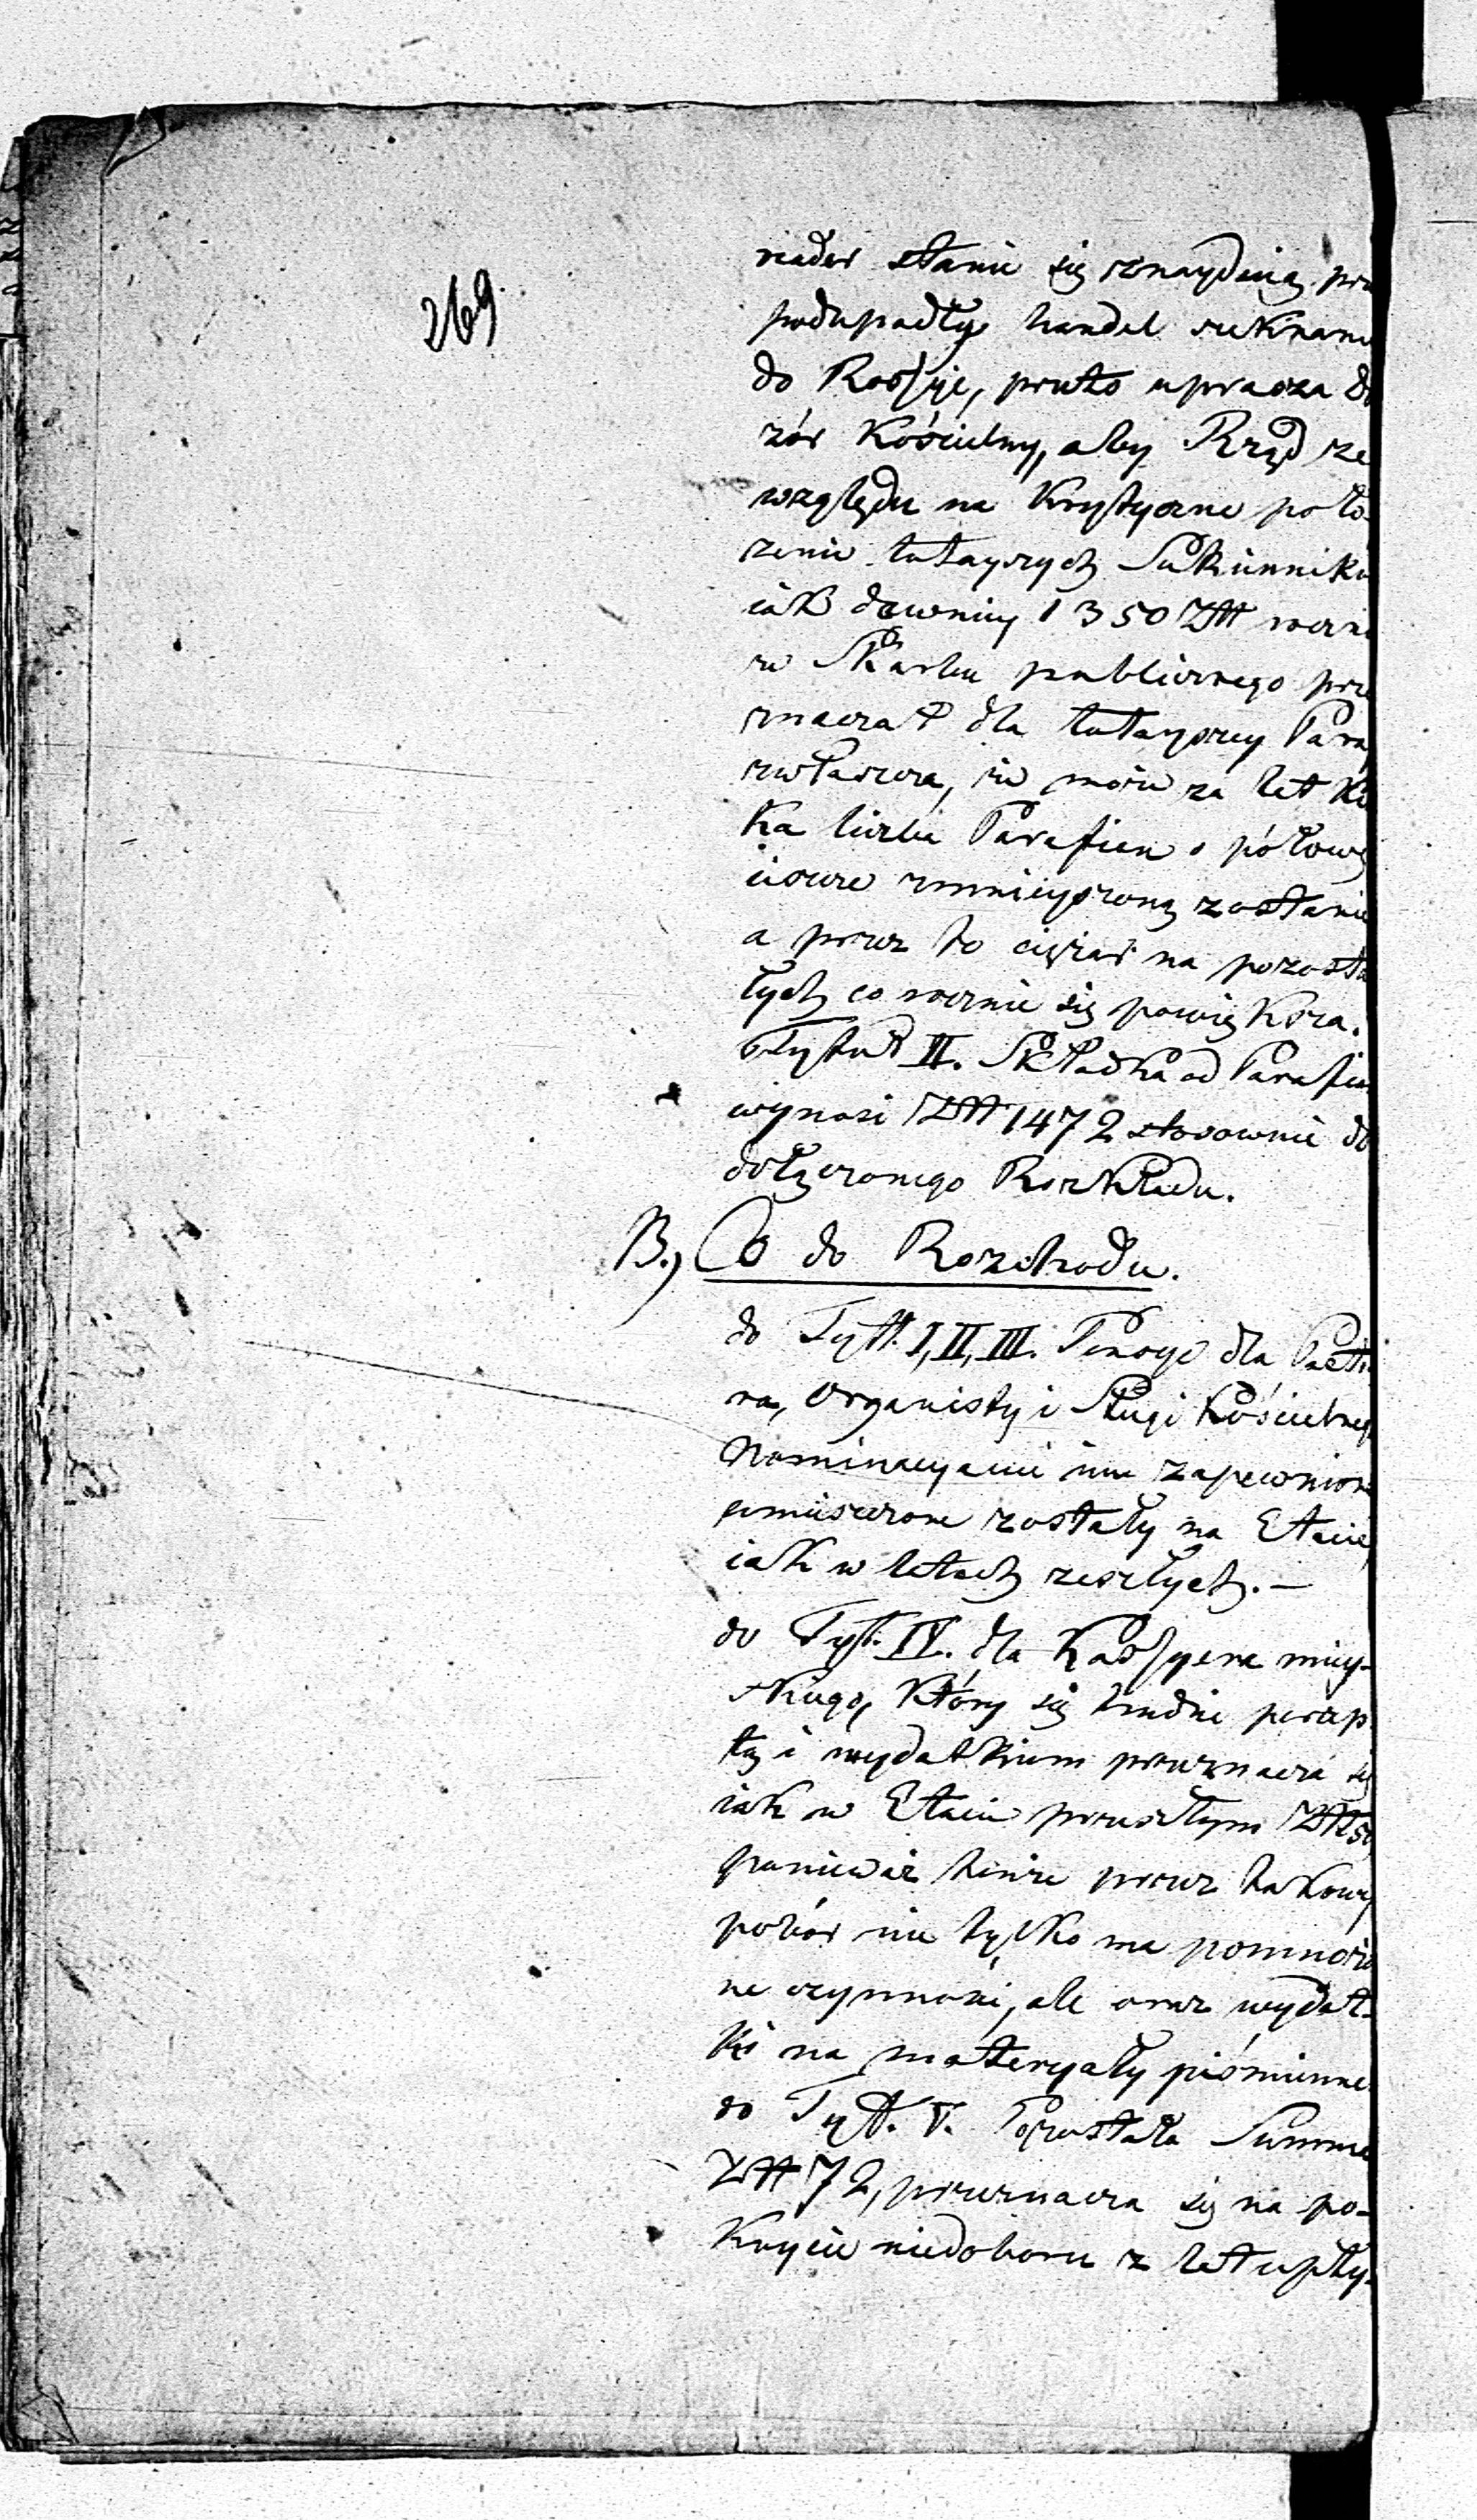 269
rader stanie się znayduią, prz
podupadły handel suknami
do Rossyje, przeto uprasza do
zór Kościelny, aby Rząd ze
względu na Krytyczne poło-
żenie tutayszych Sukiennikó
iak dawniey 1350 Złt roczni
ze Skarbu publicznego prze
znaczał dla tutayszey Para
zwłaszcza, że może za lat ki
ka liczba Parafian o połowę
ieszcze zmnieyszoną zostanie
a przez to ciężar na pozosta
łych co rocznie się powiększa.
Tytuł II. Składka od Parafia
wynosi Złt 1472 stosownie do
dołączonego Rozkładu.
B., Co do Rozchodu.
do Tytt. I, II, III. Pensye dla Pasto
ra, Organisty i Sługi Kościelneg
Nominacyami im zapewnione
umieszczone zostały na Etacie,
iak w latach zeszłych. —
do Tyt. IV. dla Kassyera miey-
skiego, który się trudni percep
tą i wydatkiem przeznacza się
iak w Etacie przeszłym Złt 50
ponieważ tenże przez takowy
pobór nie tylko ma pomnożo
ne czynności, ale oraz wydat-
ki na materyały piśmienne
do Tytt. V. Pozostała Summa
Złt 72, przeznacza się na po-
krycie niedoboru z lat upły-